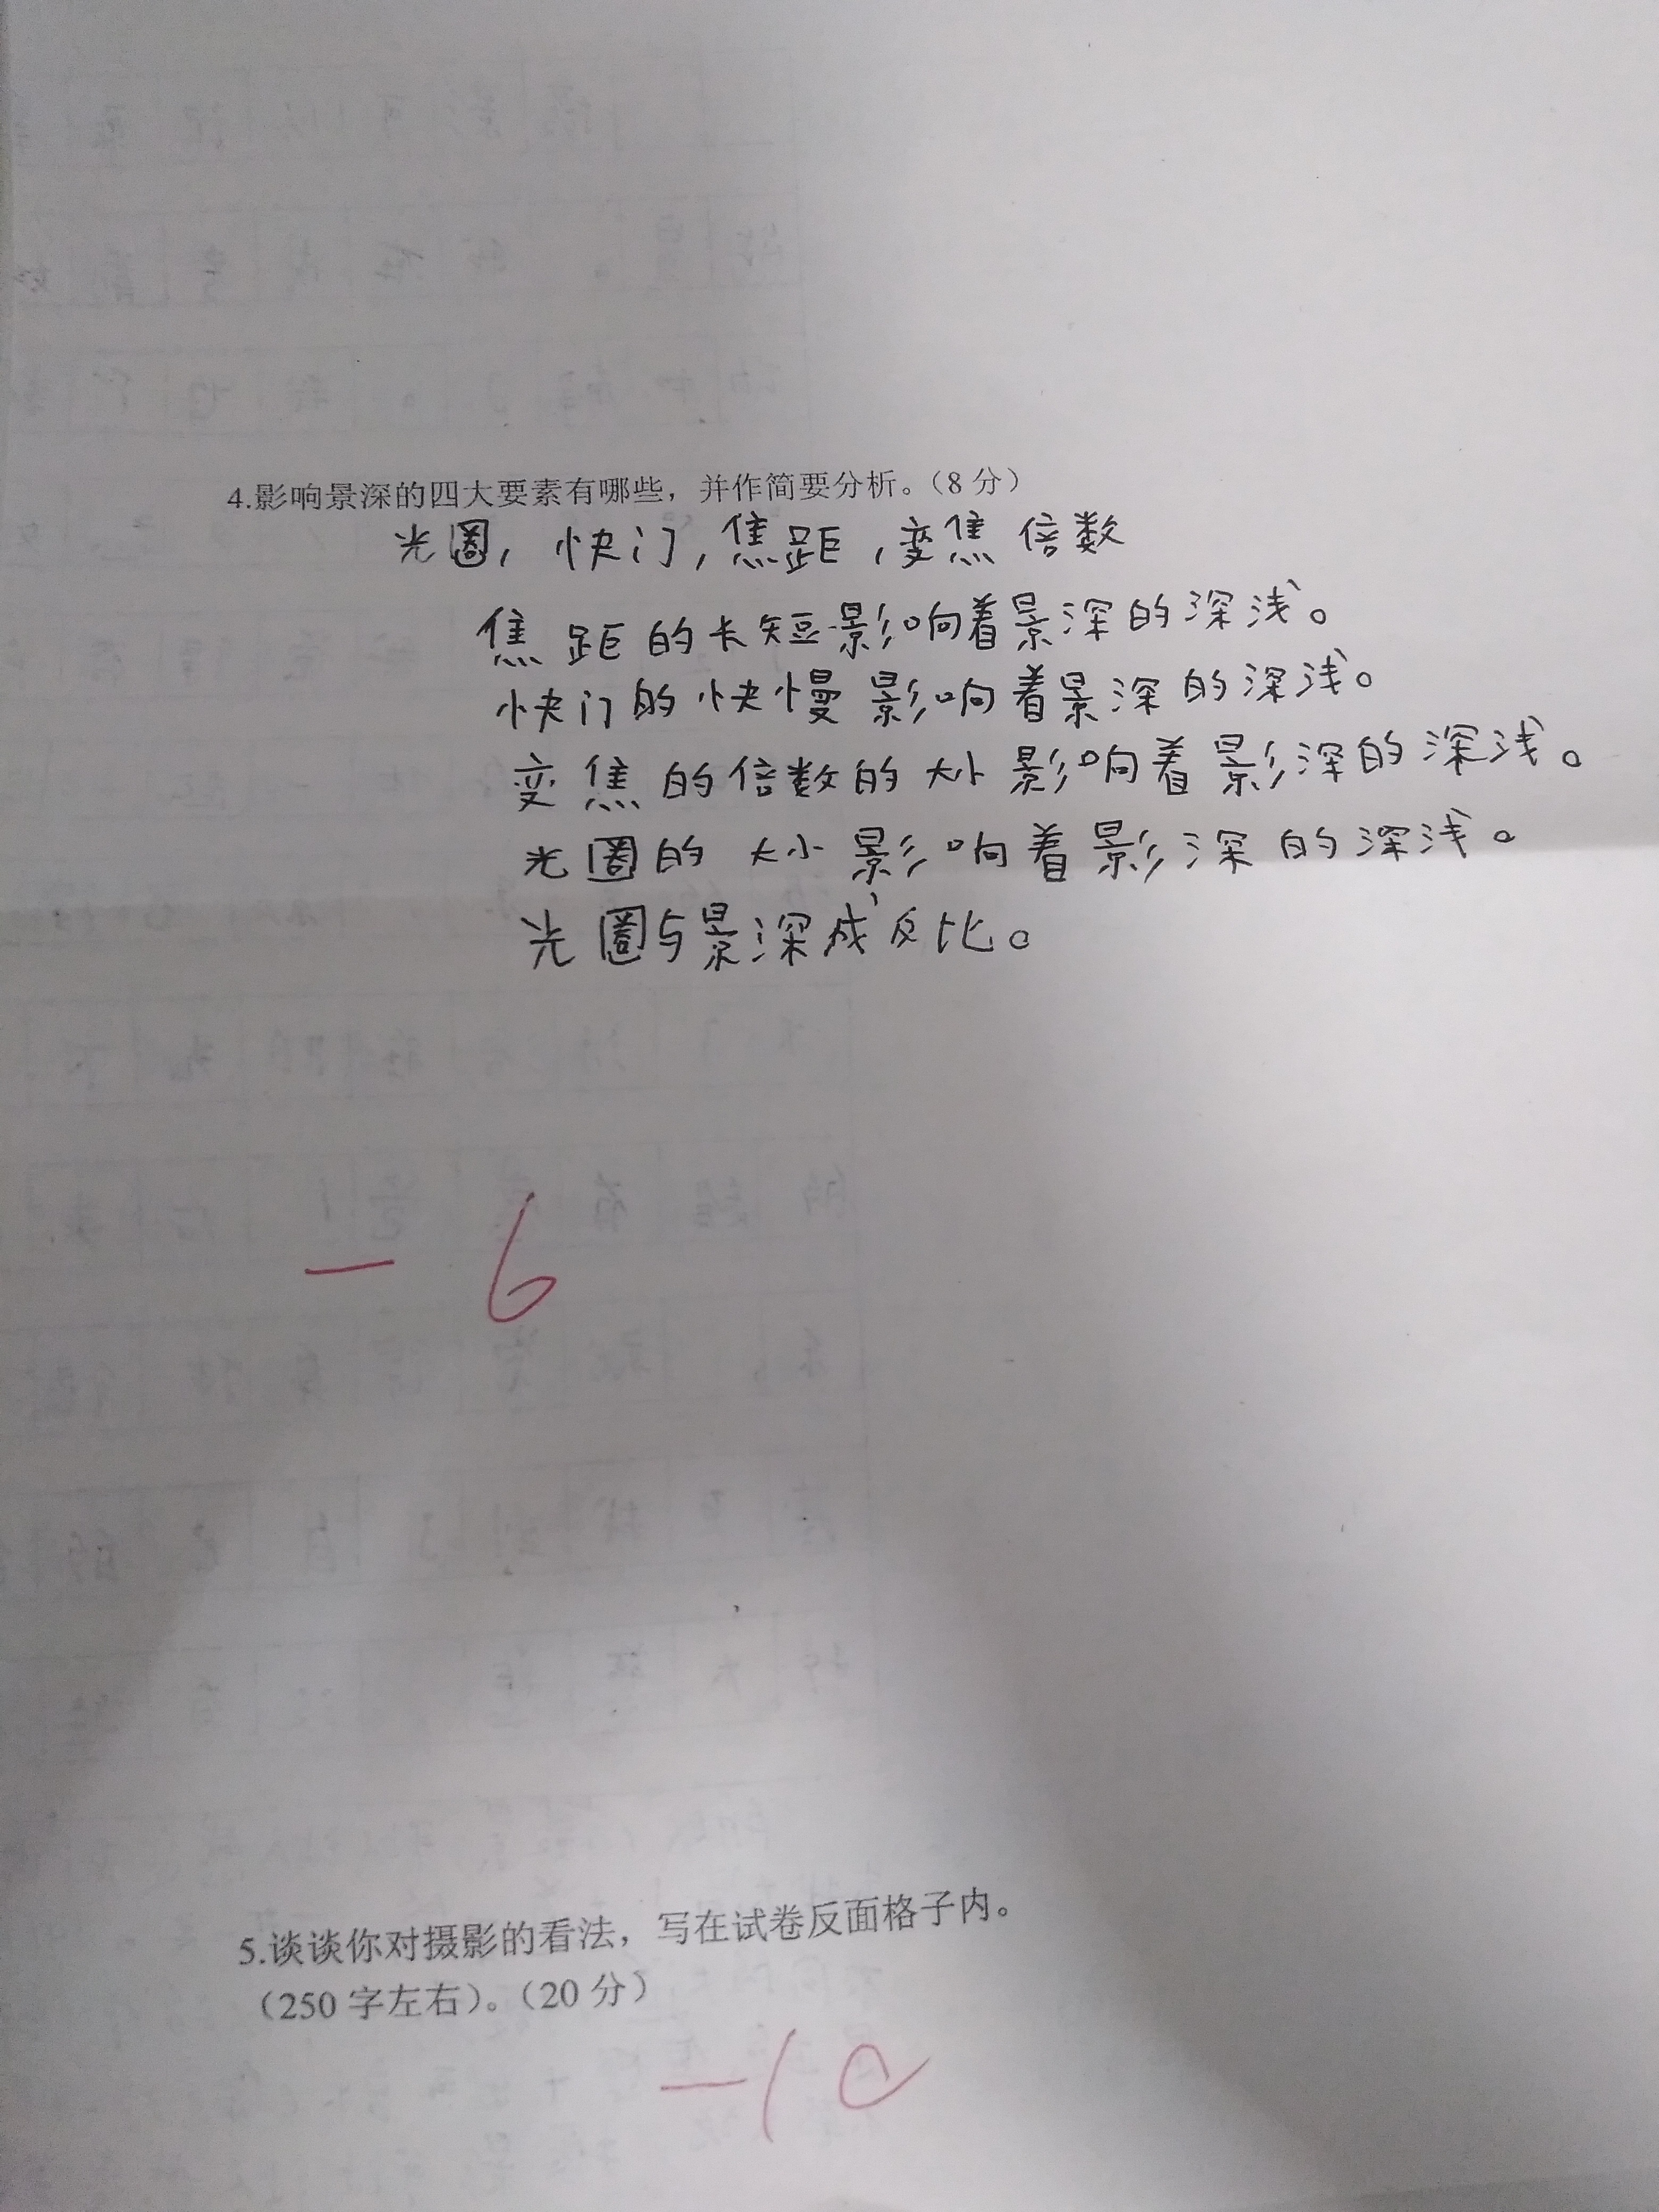 4.影响景深的四大要素有哪些，并作简要分析。（8分）
光圈，快门，焦距，变焦倍数
焦距的长短影响着景深的深浅。
快门的快慢影响着景深的深浅。
变焦的倍数的大小影响着影深的深浅。
光圈的大小影响着影深的深浅。
光圈与景深成反比。
- 6
5.谈谈你对摄影的看法，写在试卷反面格子内。
（250字左右）。（20分）
-10